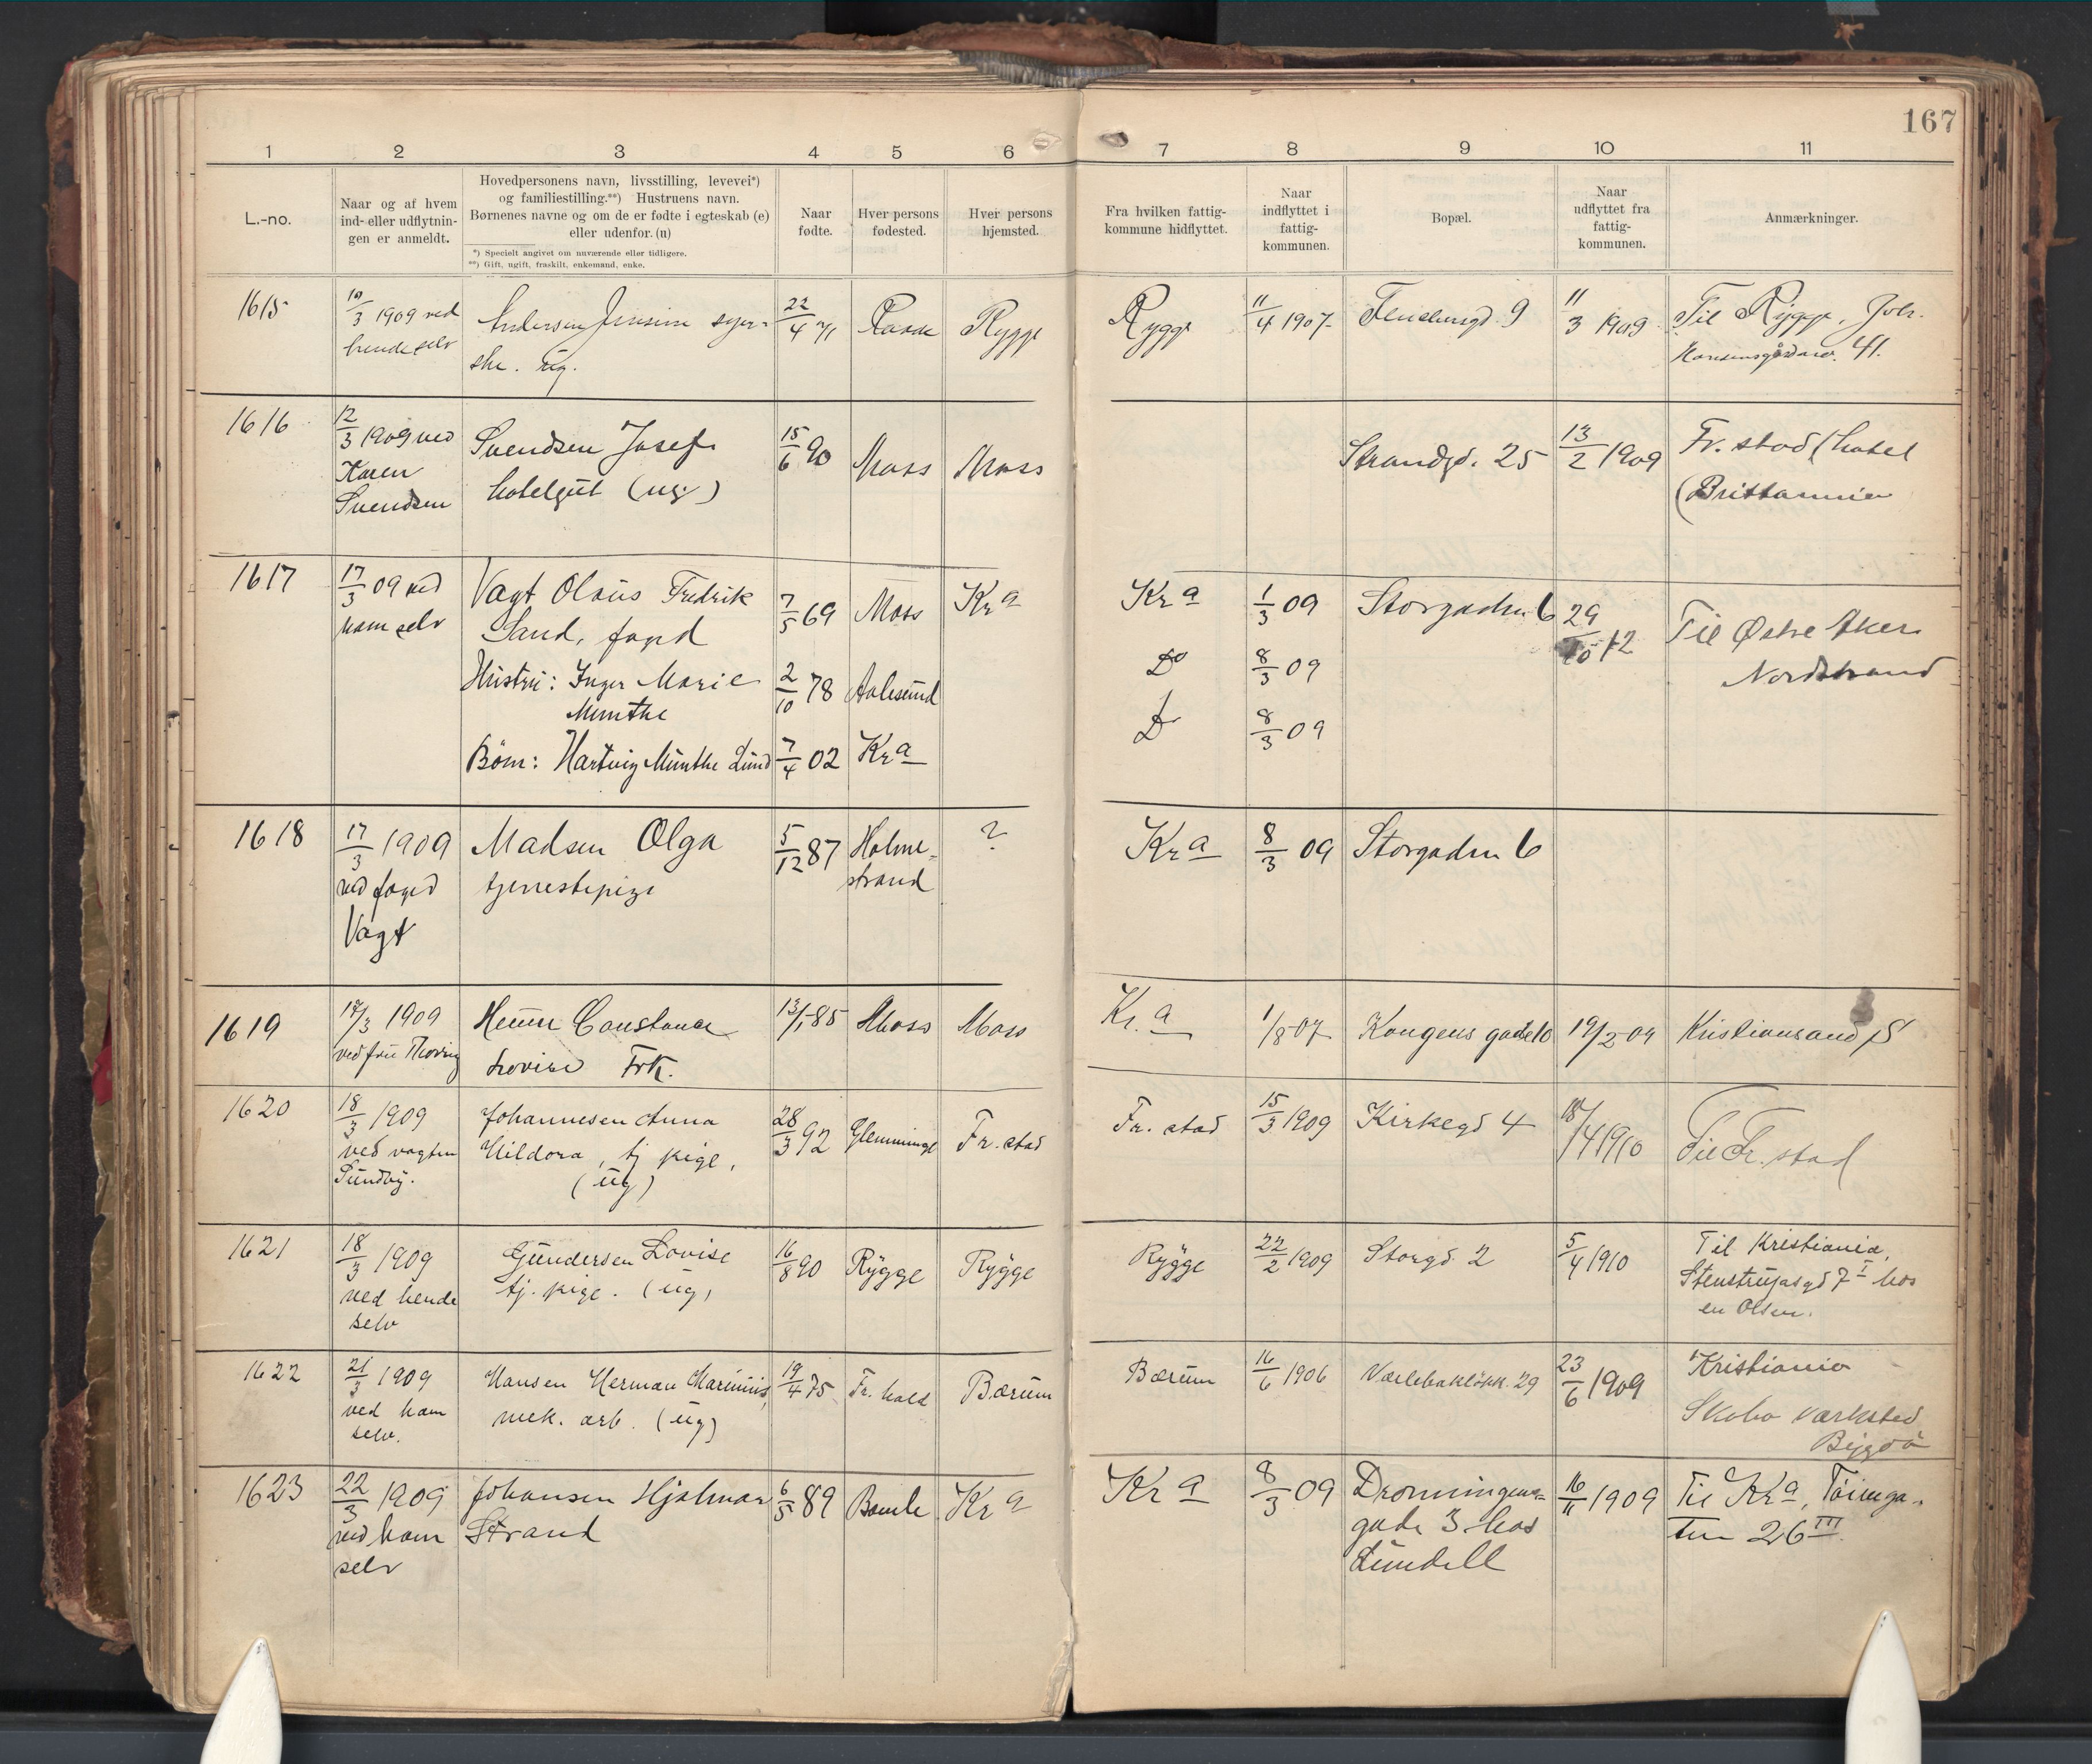 167
1 2 3 4 5 6 7 8 9 10 11
L.-no.
Naar og af hvem
ind- eller udflytnin-
gen er anmeldt.
Hovedpersonens navn, livsstilling, levevei*)
og familiestilling.**) Hustruens navn.
Børnenes navne og om de er fødte i egteskab (e)
eller udenfor. (u)
*) Specielt angivet om nuværende eller tidligere.
**) Gift, ugift, fraskilt, enkemand, enke.
Naar
fødte.
Hver persons
fødested.
Hver persons
hjemsted.
Fra hvilken fattig-
kommune hidflyttet.
Naar
indflyttet i
fattig-
kommunen.
Bopæl.
Naar
udflyttet fra
fattig-
kommunen.
Anmærkninger.
1615
10/3 1909 ved
hende selv
Andersen Jensine syer-
ske. ug.
22/4
Rygge
Rygge
11/4 1907
9
11/3 1909
Til Rygge, Joh.
41.
1616
12/3 1909 ved
Karen
Svendsen
Svendsen Josef
hotelgut (ug)
15/6 90
Moss
Moss
Strandgd. 25
13/2 1909
Fr. stad (hotel
(Brittannia
1617
17/3 09 ved
ham selv
Vagt Olaus Fredrik
Sand, foged
7/5 69
Moss
Kr a
Kr a
1/3 09
Storgaden 6
29/10 12
Til Østre Aker
Nordstrand
Hustru: Inger Marie
Munthe
2/10 78
Aalesund
Do
8/3 09
Børn: Hartvig Munthe Lund
7/4 02
Kr a
D
8/3 09
1618
17/3 1909
ved foged
Vagt
Madsen Olga
tjenestepige
5/12 87
Holme-
strand
?
Kr a
8/3 09
Storgaden 6
1619
17/3 1909
ved fru Thoring
Constance
Lovise Frk.
13/1 85
Moss
Moss
Kr. a
1/8 07
Kongens gade 10
19/2 09
Kristiansand S
1620
18/3 1909
ved vagtm
Sundby.
Johannesen Anna
Hildora, tj pige,
(ug)
28/3 92
Glemminge
Fr. stad
Fr. stad
15/3 1909
Kirkegd 4
18/4 1910
Til Fr. stad
1621
18/3 1909
ved hende
selv
Gundersen Lovise
tj. pige. (ug)
16/8 90
Rygge
Rygge
Rygge
22/2 1909
Storgd 2
5/4 1910
Til Kristiania,
Stenstrupsgd 7 I hos
en Olsen.
1622
21/3 1909
ved ham
selv.
Hansen Herman Marinius,
mek. arb. (ug)
19/4 75
Fr. hald
Bærum
Bærum
16/6 1906
Værlebakløkk. 29
23/6 1909
Kristiania
Skabo værksted
Bygdö
1623
22/3 1909
ved ham
selv
Johansen Hjalmar
Strand
6/5 89
Bamle
Kr a
Kr a
8/3 09
Dronningens-
gade 3 hos
Lundell
16/11 1909
Til Kr a, Töienga-
ten 26 III